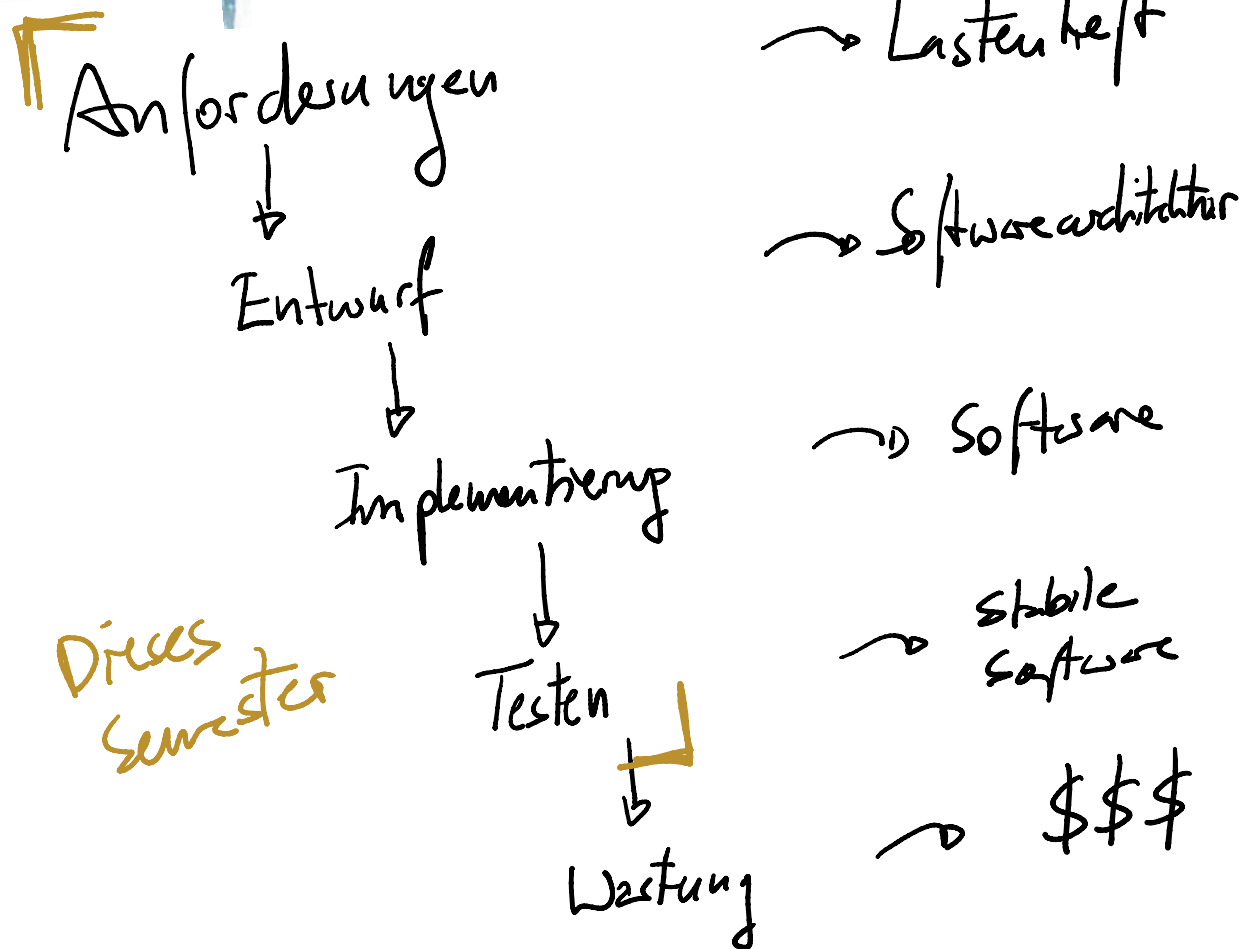 Anforderungen → Lastenheft
Entwurf → Softwarearchitektur
Implementierung → Software
Testen → Stabile
Software
Wartung → $$$
Dieses
Semester